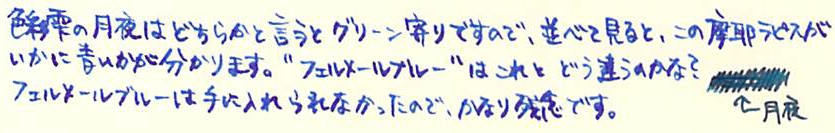 色彩雫の月夜はどちらかと言うとグリーン寄りですので、並べて見ると、この摩耶ラピスが
いかに青いかが分かります。"フェルメールブルー"はこれとどう違うのかな?
フェルメールブルーは手に入れられなかったので、かなり残念です。
↑月夜